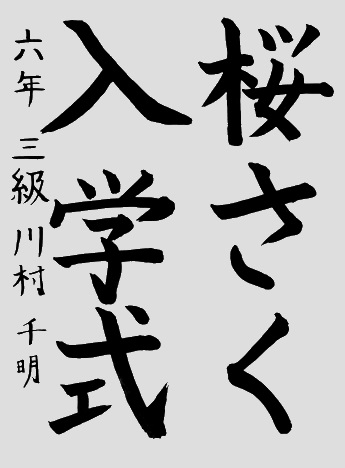 桜さく
入学式
六年 三級 川村 千明